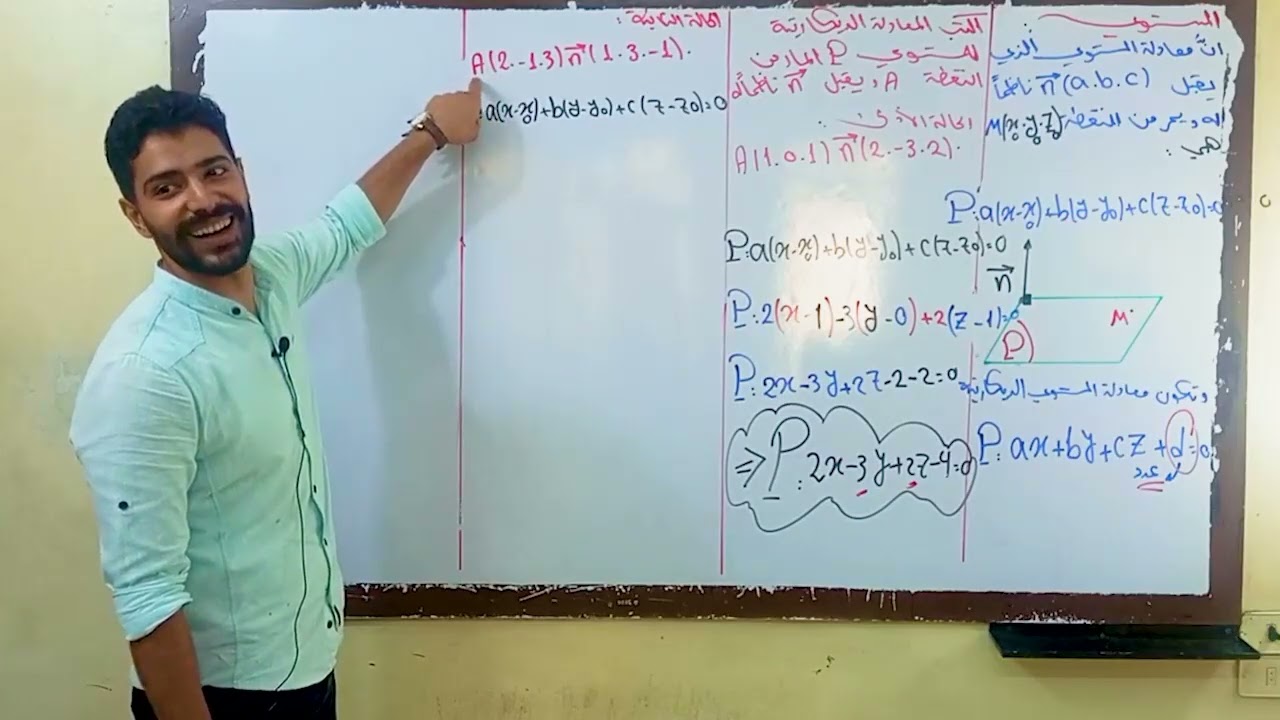 المستوي:
إنَّ معادلة المستوي الذي
يقبل n⃗(a.b.c) ناظماً
له ويمر من النقطة M(x₀.y₀.z₀)
هي:
P: a(x-x₀)+b(y-y₀)+c(z-z₀)=0
n⃗
P
M
وتكون معادلة المستوي الديكارتية
P: ax+by+cz+d=0
عدد
اكتب المعادلة الديكارتية
للمستوي P المار من
النقطة A ويقبل n⃗ ناظماً له
الحالة الأولى:
A(1.0.1) n⃗(2.-3.2).
P: a(x-x₀)+b(y-y₀)+c(z-z₀)=0
P: 2(x-1)-3(y-0)+2(z-1)=0
P: 2x-3y+2z-2-2=0
⇒ P: 2x-3y+2z-4=0
الحالة الثانية:
A(2.-1.3) n⃗(1.3.-1).
: a(x-x₀)+b(y-y₀)+c(z-z₀)=0